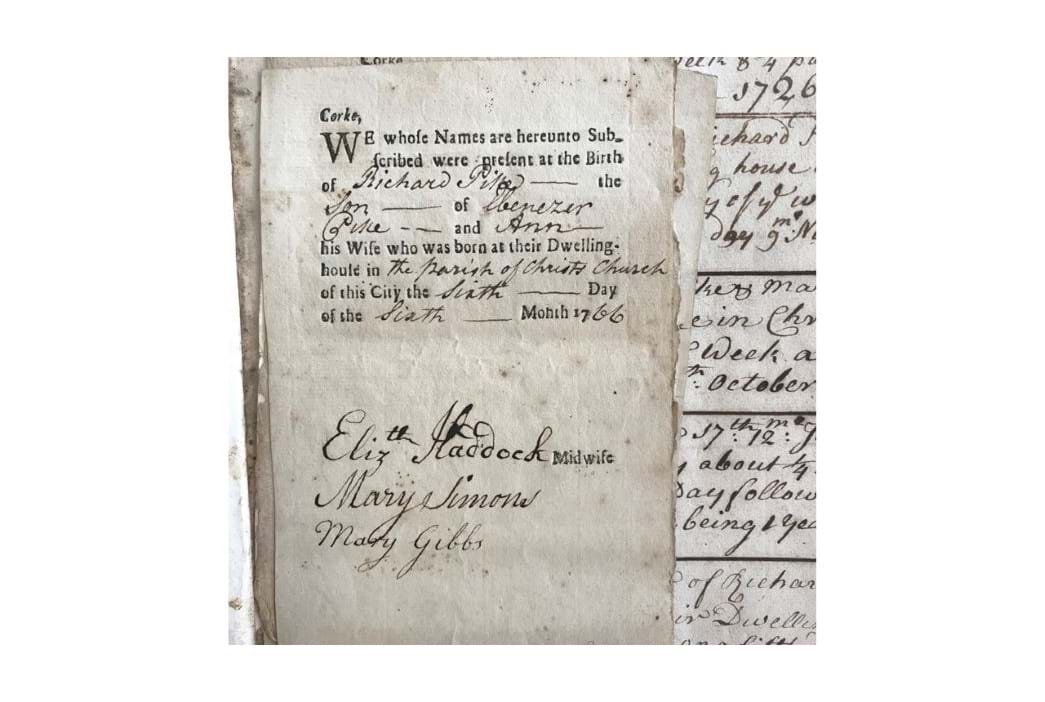 Corke
Corke,
WE whose Names are hereunto Sub-
scribed were present at the Birth
of Richard Pike — the
Son — of Ebenezer
Pike -- and Ann —
his Wife who was born at their Dwelling-
house in the parish of Christs Church
of this City the Sixth — Day
of the Sixth — Month 1766
Elizth Haddock Midwife
Mary Simons
Mary Gibbs
1726
ichard
house
day 9 mo
in Chr
Week a
October
17th: 12 mo:
about 1/4
Day follow
being 1
of Richar
Dwelli